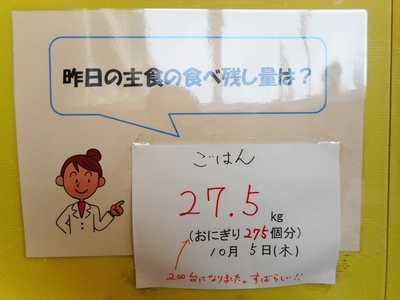 昨日の主食の食べ残し量は？
ごはん
27.5 kg
(おにぎり275個分)
10月 5日(木)
200台になりました。すばらしい!!